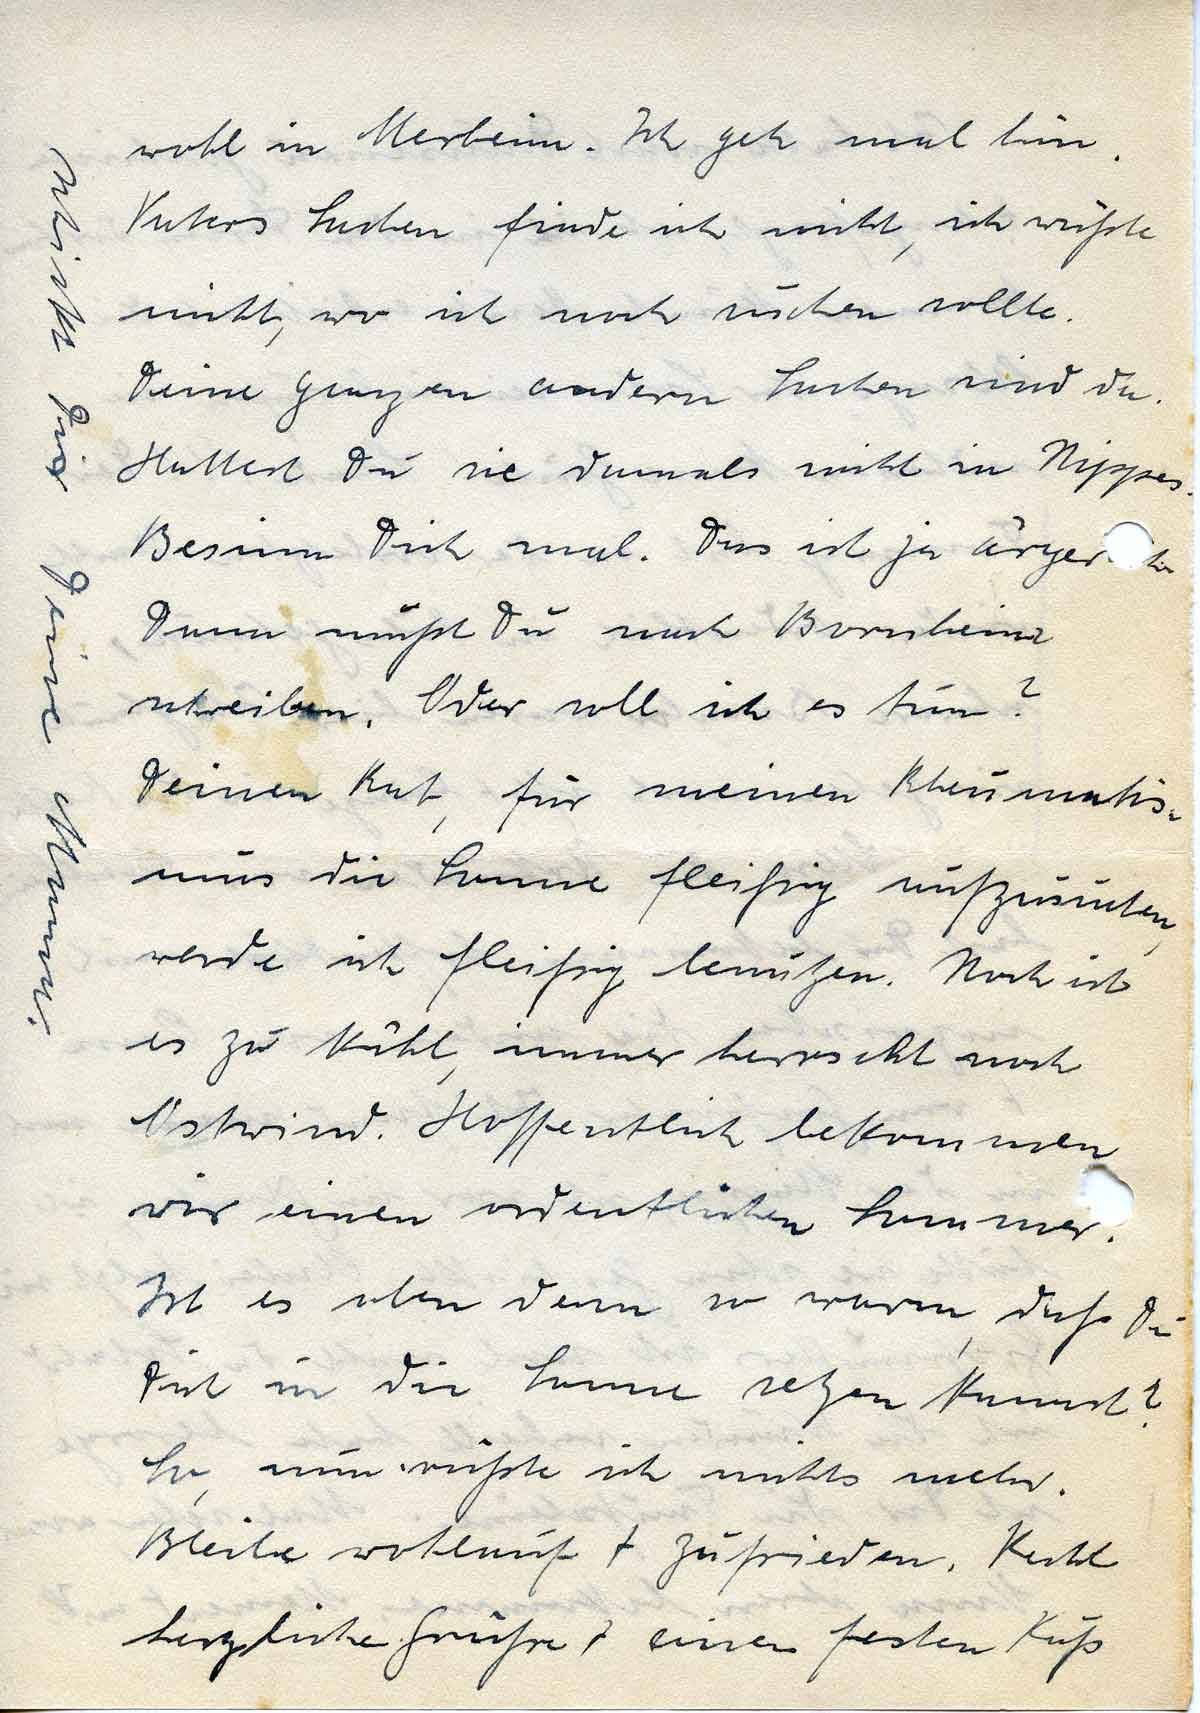 wohl in Merheim. Ich geh mal hin.
Vaters Sachen finde ich nicht, ich wüßte
nicht, wo ich noch suchen sollte.
Deine ganzen andern Sachen sind da.
Hattest Du sie damals nicht in Nippes.
Besinn Dich mal. Das ist ja ärgerlich
Dann mußt Du nach Bornheim
schreiben. Oder soll ich es tun?
Deinen Rat, für meinen Rheumatis-
mus die Sonne fleißig aufzusuchen,
werde ich fleißig benutzen. Noch ist
es zu kühl, immer herrscht noch
Ostwind. Hoffentlich bekommen
wir einen ordentlichen Sommer.
Ist es oben denn so warm, daß Du
Dich in die Sonne setzen kannst?
So, nun wüßte ich nichts mehr.
Bleibe wohlauf + zufrieden. Recht
herzliche Grüße + einen festen Kuß
schickt Dir Deine Mama.